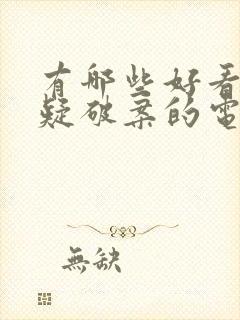 有哪些好看
疑破案的電
無缺